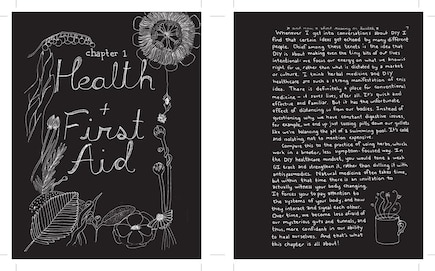 chapter 1
Health
+
First
Aid
Whenever I get into conversations about DIY I
find that certain ideas get echoed by many different
people. Chief among these tenets is the idea that
DIY is about making even the tiny bits of our lives
intentional: we focus our energy on what we know is
right for us, rather than what is dictated by a market
or culture. I think herbal medicine and DIY
healthcare are such a strong manifestation of this
idea. There is definitely a place for conventional
medicine - it saves lives, after all. It's quick and
effective and familiar. But it has the unfortunate
effect of distancing us from our bodies. Instead of
questioning why we have constant digestive issues,
for example, we end up just tossing pills down our gullets
like we're balancing the pH of a swimming pool. It's cold
and isolating, not to mention expensive.
Compare this to the practice of using herbs, which
work in a broader, less symptom-focused way. In
the DIY healthcare mindset, you would tone a weak
GI tract and strengthen it, rather than drilling it with
antispasmodics. Natural medicine often takes time,
but within that time there is an invitation to
actually witness your body changing.
It forces you to pay attention to
the systems of your body, and how
they interact and signal each other.
Over time, we become less afraid of
our mysterious guts and tunnels, and
thus, more confident in our ability
to heal ourselves. And that's what
this chapter is all about!